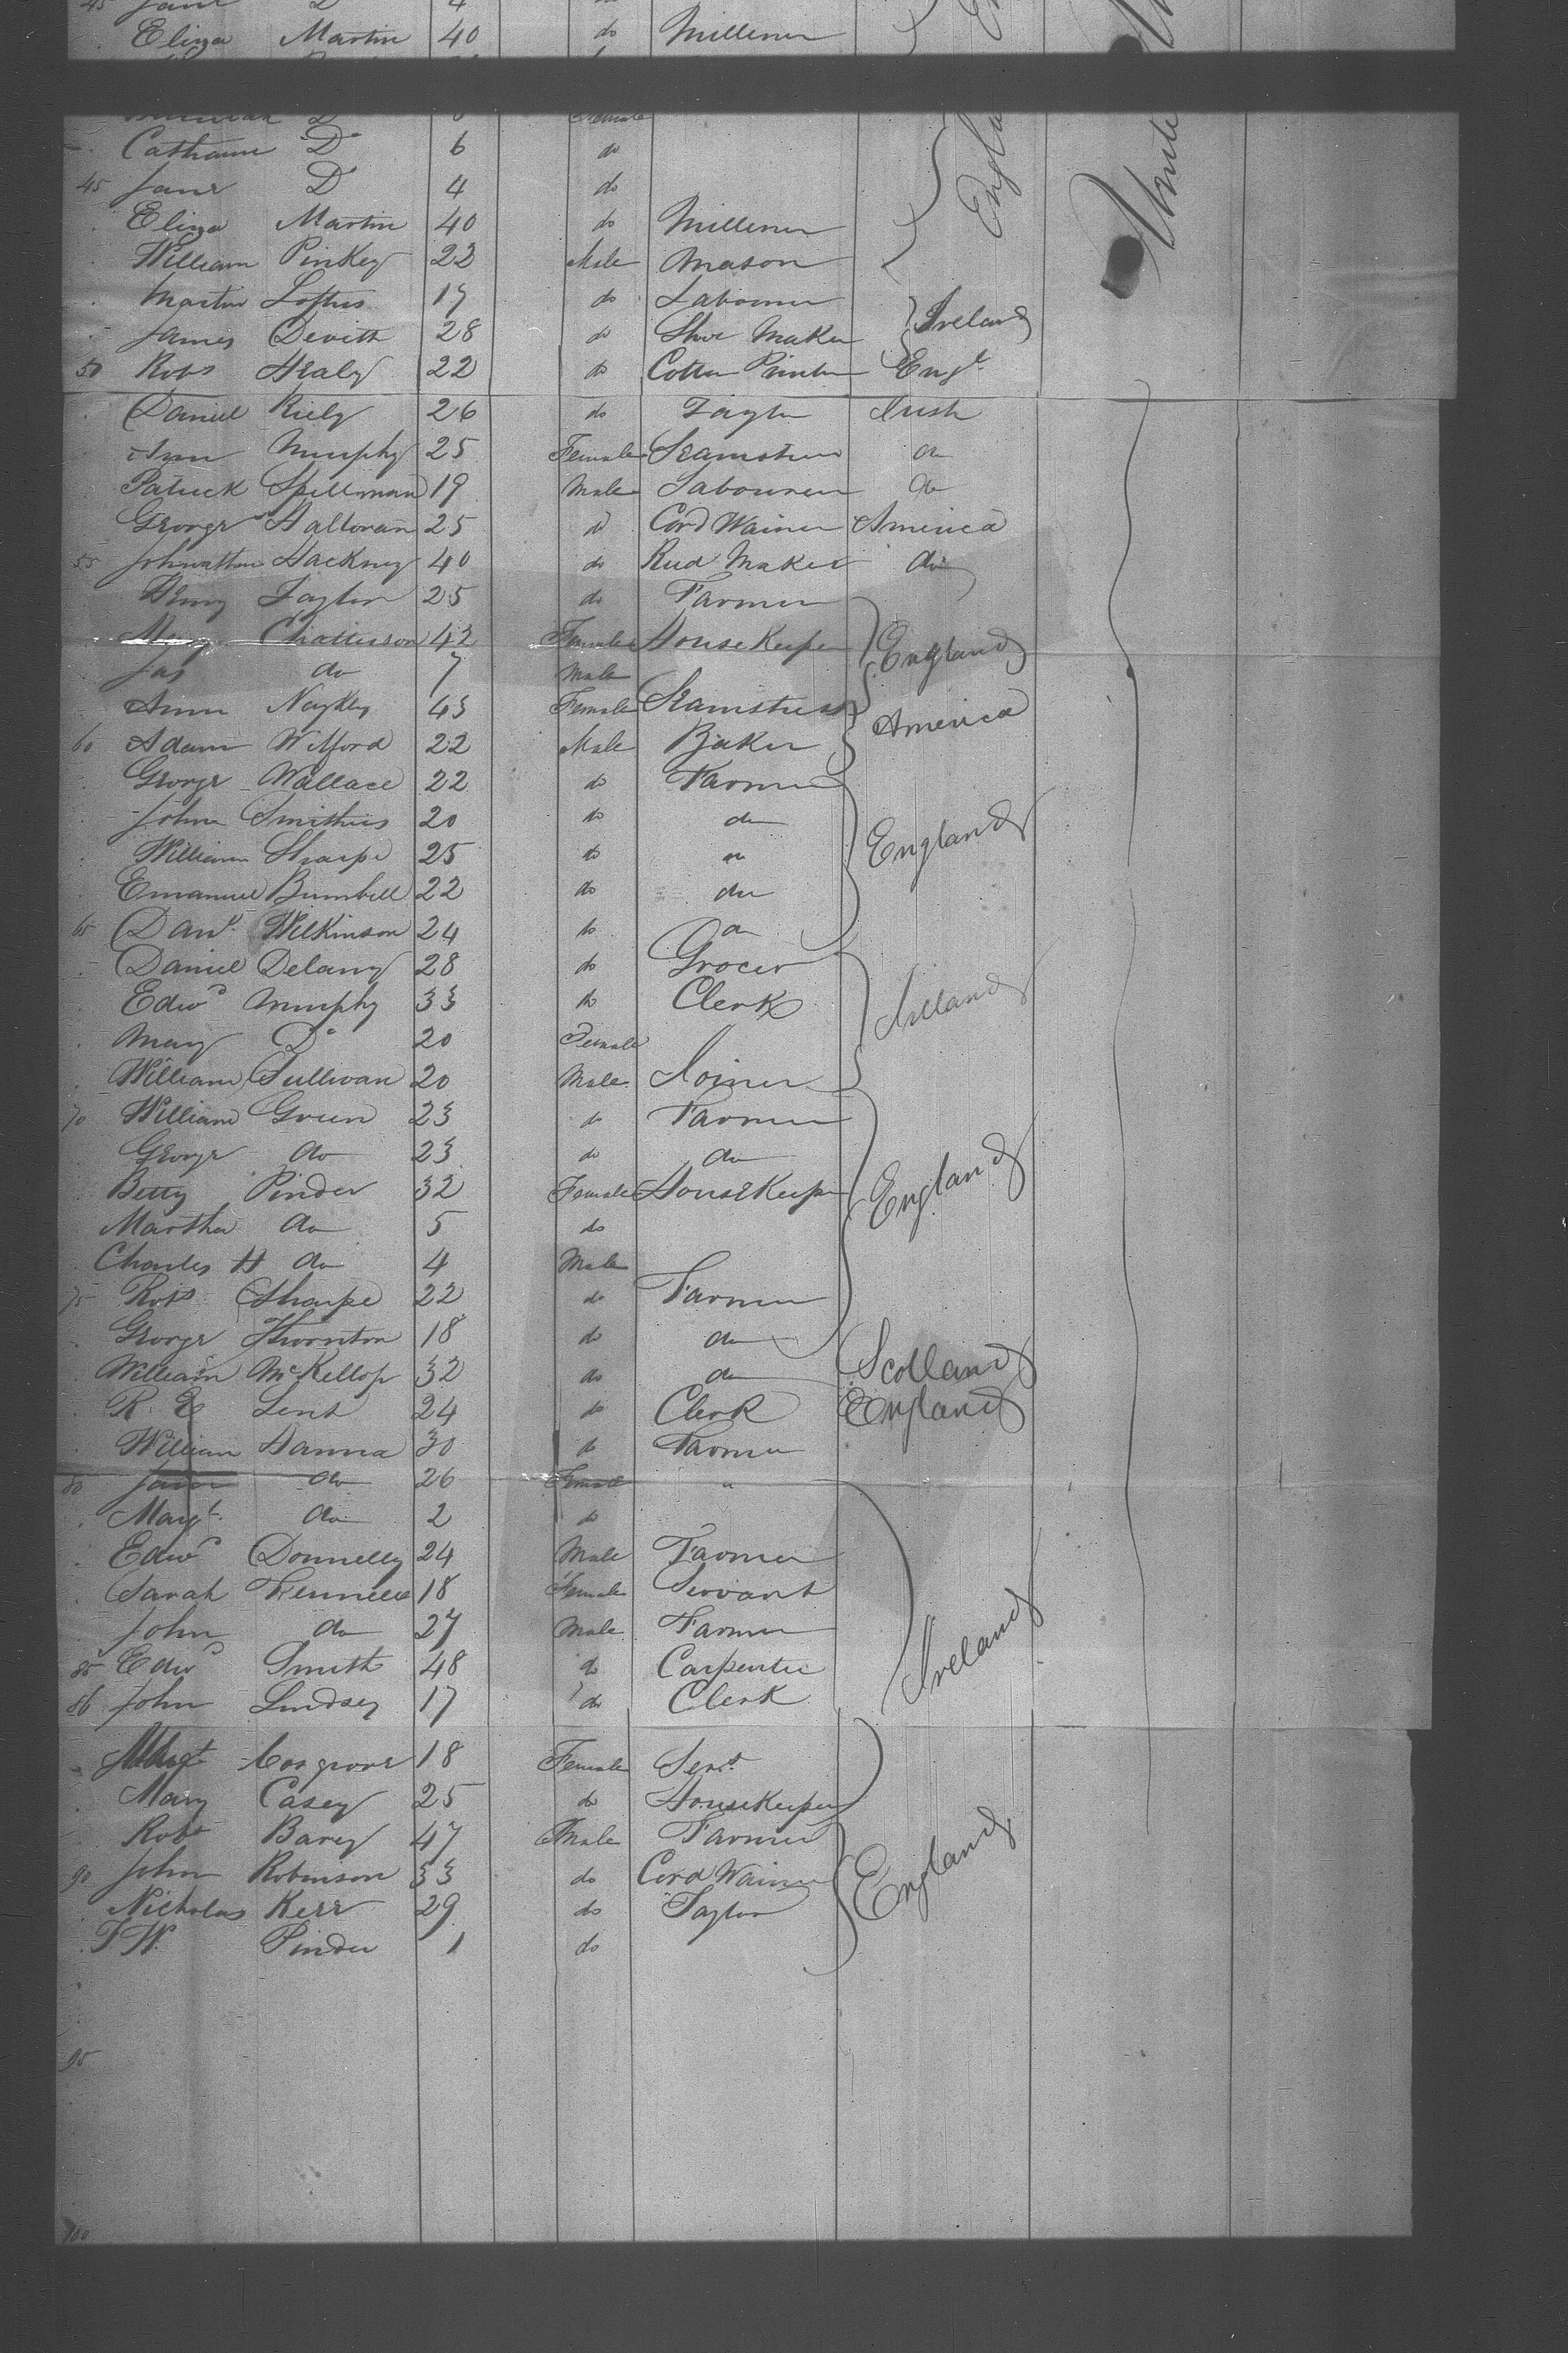 45 Jane D 4 do
Eliza Martin 40 do Millener
Female
Catharine Do 6 do
45 Jane Do 4 do
Eliza Martin 40 do Millener
William Pinkey 22 Male Mason
Martin Loftus 19 do Labourer
James Devitt 28 do Shoe Maker Ireland
50 Robt Healy 22 do Cotton Printer Engd
Daniel Riely 26 do Taylor Irish
Ann Murphy 25 Female Seamstress do
Patrick Spellman 19 Male Labourer do
George Halloran 25 do Cord Wainer America
55 Johnathan Hackney 40 do Reed Maker do
Henry Taylor 25 do Farmer
Mary Chatterson 42 Female House Keeper England
Jas do 7 Male
Ann Naykey 43 Female Seamstress America
60 Adam Wilford 22 Male Baker
George Wallace 22 do Farmer
John Smithies 20 do do England
William Sharpe 25 do do
Emanuel Bumbell 22 do do
65 Danl Wilkinson 24 do do
Daniel Delany 28 do Grocer
Edwd Murphy 33 do Clerk Ireland
Mary Do 20 Female
William Sullivan 20 Male Joiner
70 William Green 23 do Farmer
George do 23 do do
Betty Pinder 32 Female House Keeper England
Martha do 5 do
Charles H do 4 Male
75 Robt Sharpe 22 do Farmer
George Thornton 18 do do
William McKellop 32 do do Scotland
R. E Lent 24 do Clerk England
William Hanna 30 do Farmer
80 Jane do 26 Female "
Margt do 2 do
Edwd Donnelly 24 Male Farmer
Sarah Fennell 18 Female Servant
John do 27 Male Farmer Ireland
85 Edwd Smith 48 do Carpenter
86 John Lindsey 17 do Clerk
Margt Cosgrove 18 Female Servt
Mary Casey 25 do House Keeper
Robt Barey 47 Male Farmer
90 John Robinson 33 do Cord Wainer England
Nicholas Kerr 29 do Taylor
T W. Pinder 1 do
95
100